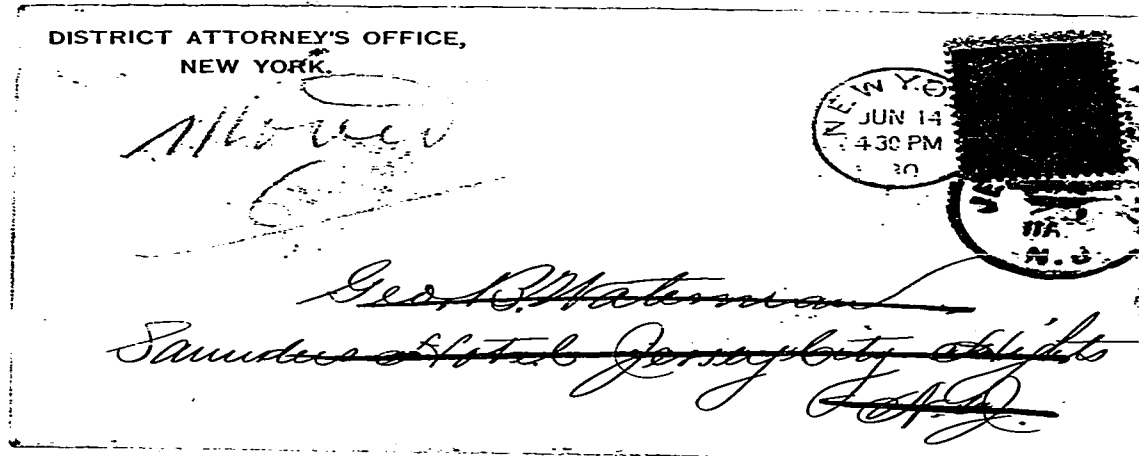 DISTRICT ATTORNEY'S OFFICE,
NEW YORK.
Moved
NEW YO
JUN 14
4 30 PM
N.J.
Geo. B. Waterman
Saunders Hotel Jersey City Heights
N.J.